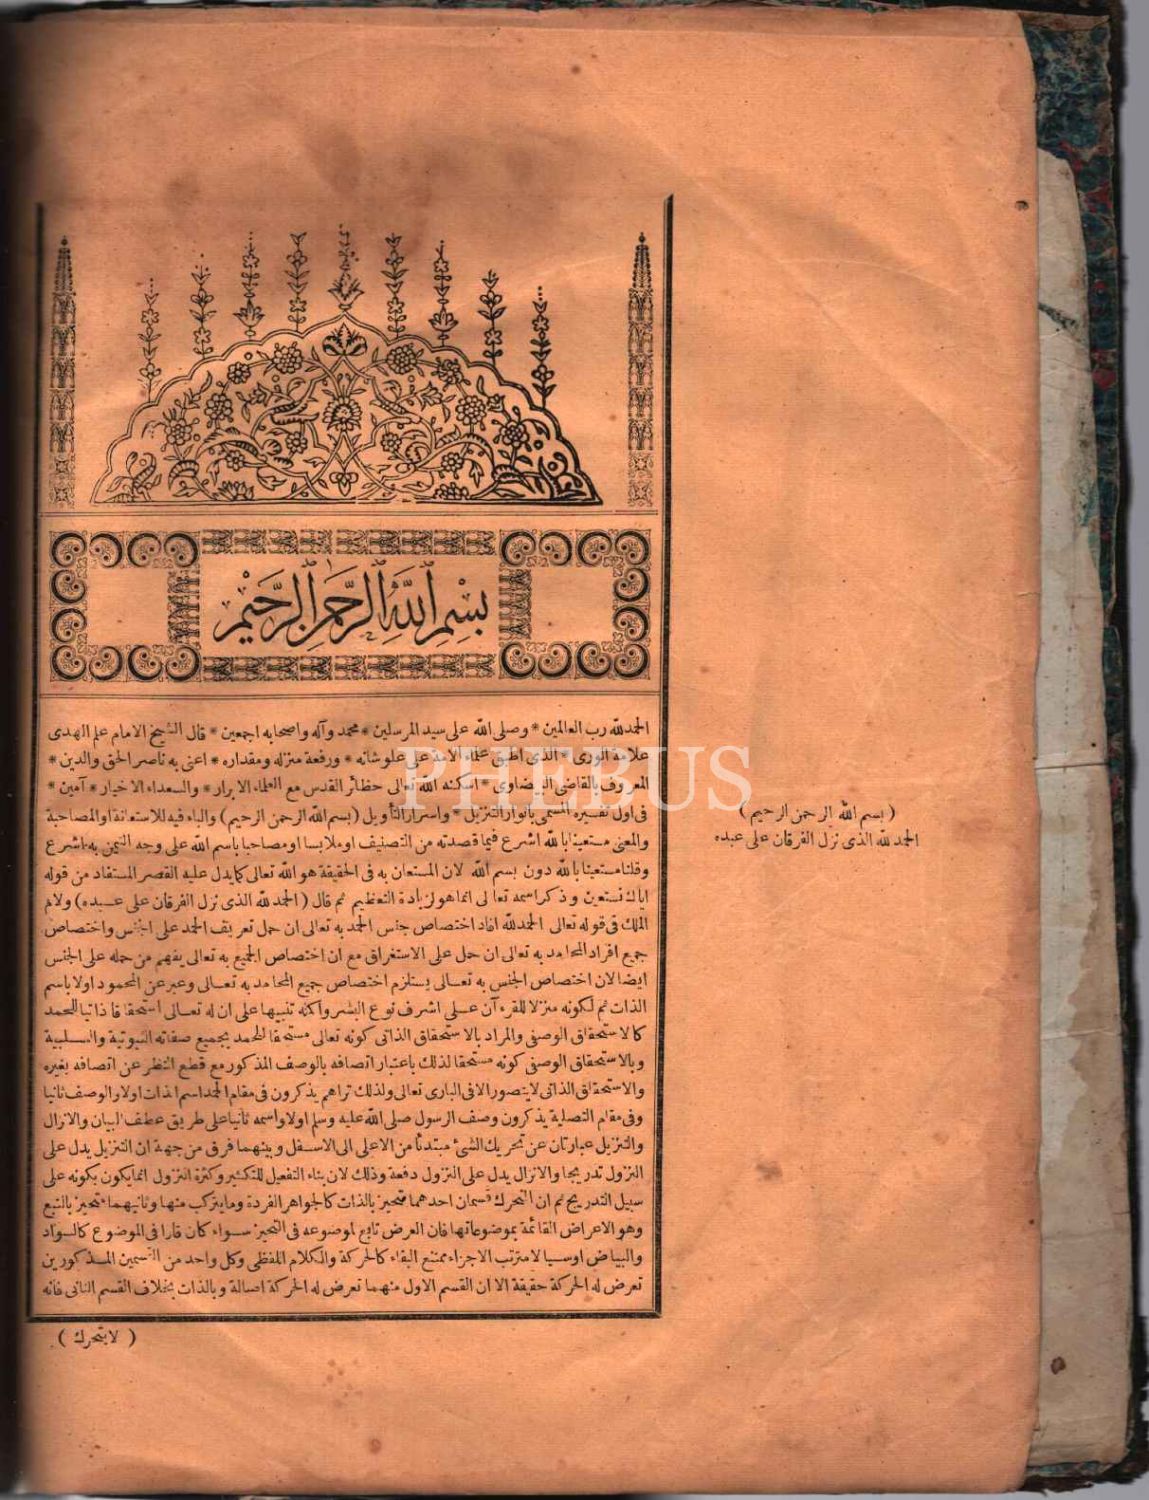 بِسْمِ ٱللَّهِ ٱلرَّحْمٰنِ ٱلرَّحِيْمِ
الحمد لله رب العالمين * وصلى الله على سيد المرسلين * محمد وآله واصحابه اجمعين * قال الشيخ الامام علم الهدى
علامة الورى * الذى اطبق علماء الامة على علو شانه * ورفعة منزله ومقداره * اعنى به ناصر الحق والدين *
المعروف بالقاضى البيضاوى * اسكنه الله تعالى حظائر القدس مع العلماء الابرار * والسعداء الاخيار * آمين *
فى اول تفسيره المسمى بانوار التنزيل * واسرار التأويل (بسم الله الرحمن الرحيم) والباء فيه للاستعانة او المصاحبة
والمعنى مستعينا بالله اشرع فيما قصدته من التصنيف او ملابسا او مصاحبا باسم الله على وجه التيمن به اشرع
وقلنا مستعينا بالله دون بسم الله لان المستعان به فى الحقيقة هو الله تعالى كما يدل عليه القصر المستفاد من قوله
اياك نستعين وذكر اسمه تعالى انما هو لزيادة التعظيم ثم قال (الحمد لله الذى نزل الفرقان على عبده) ولام
الملك فى قوله تعالى الحمد لله افاد اختصاص جنس الحمد به تعالى ان حمل تعريف الحمد على الجنس واختصاص
جميع افراد المحامد به تعالى ان حمل على الاستغراق مع ان اختصاص الجميع به تعالى يفهم من حمله على الجنس
ايضا لان اختصاص الجنس به تعالى يستلزم اختصاص جميع المحامد به تعالى وعبر عن المحمود اولا باسم
الذات ثم لكونه منزلا للقرءآن على اشرف نوع البشر ولكنه تنبيها على ان له تعالى استحقاقا ذاتيا للحمد
كالاستحقاق الوصفى والمراد بالاستحقاق الذاتى كونه تعالى مستحقا للحمد بجميع صفاته الثبوتية والسلبية
وبالاستحقاق الوصفى كونه مستحقا لذلك باعتبار اتصافه بالوصف المذكور مع قطع النظر عن اتصافه بغيره
والاستحقاق الذاتى لا يتصور الا فى البارى تعالى ولذلك تراهم يذكرون فى مقام الحمد اسم الذات اولا والوصف ثانيا
وفى مقام التصلية يذكرون وصف الرسول صلى الله عليه وسلم اولا واسمه ثانيا على طريق عطف البيان والانزال
والتنزيل عبارتان عن تحريك الشئ مبتدئا من الاعلى الى الاسفل وبينهما فرق من جهة ان التنزيل يدل على
النزول تدريجا والانزال يدل على النزول دفعة وذلك لان بناء التفعيل للتكثير وكثرة النزول انما يكون بكونه على
سبيل التدريج ثم ان المتحرك قسمان احدهما متحيز بالذات كالجواهر الفردة وما يتركب منها وثانيهما متحيز بالتبع
وهو الاعراض القائمة بموضوعاتها فان العرض تابع لموضوعه فى التحيز سواء كان قارا فى الموضوع كالسواد
والبياض او سيالا مترتب الاجزاء ممتنع البقاء كالحركة والكلام اللفظى وكل واحد من القسمين المذكورين
تعرض له الحركة حقيقة الا ان القسم الاول منهما تعرض له الحركة اصالة وبالذات بخلاف القسم الثانى فانه
( لا يتحرك )
( بسم الله الرحمن الرحيم )
الحمد لله الذى نزل الفرقان على عبده
PHEBUS